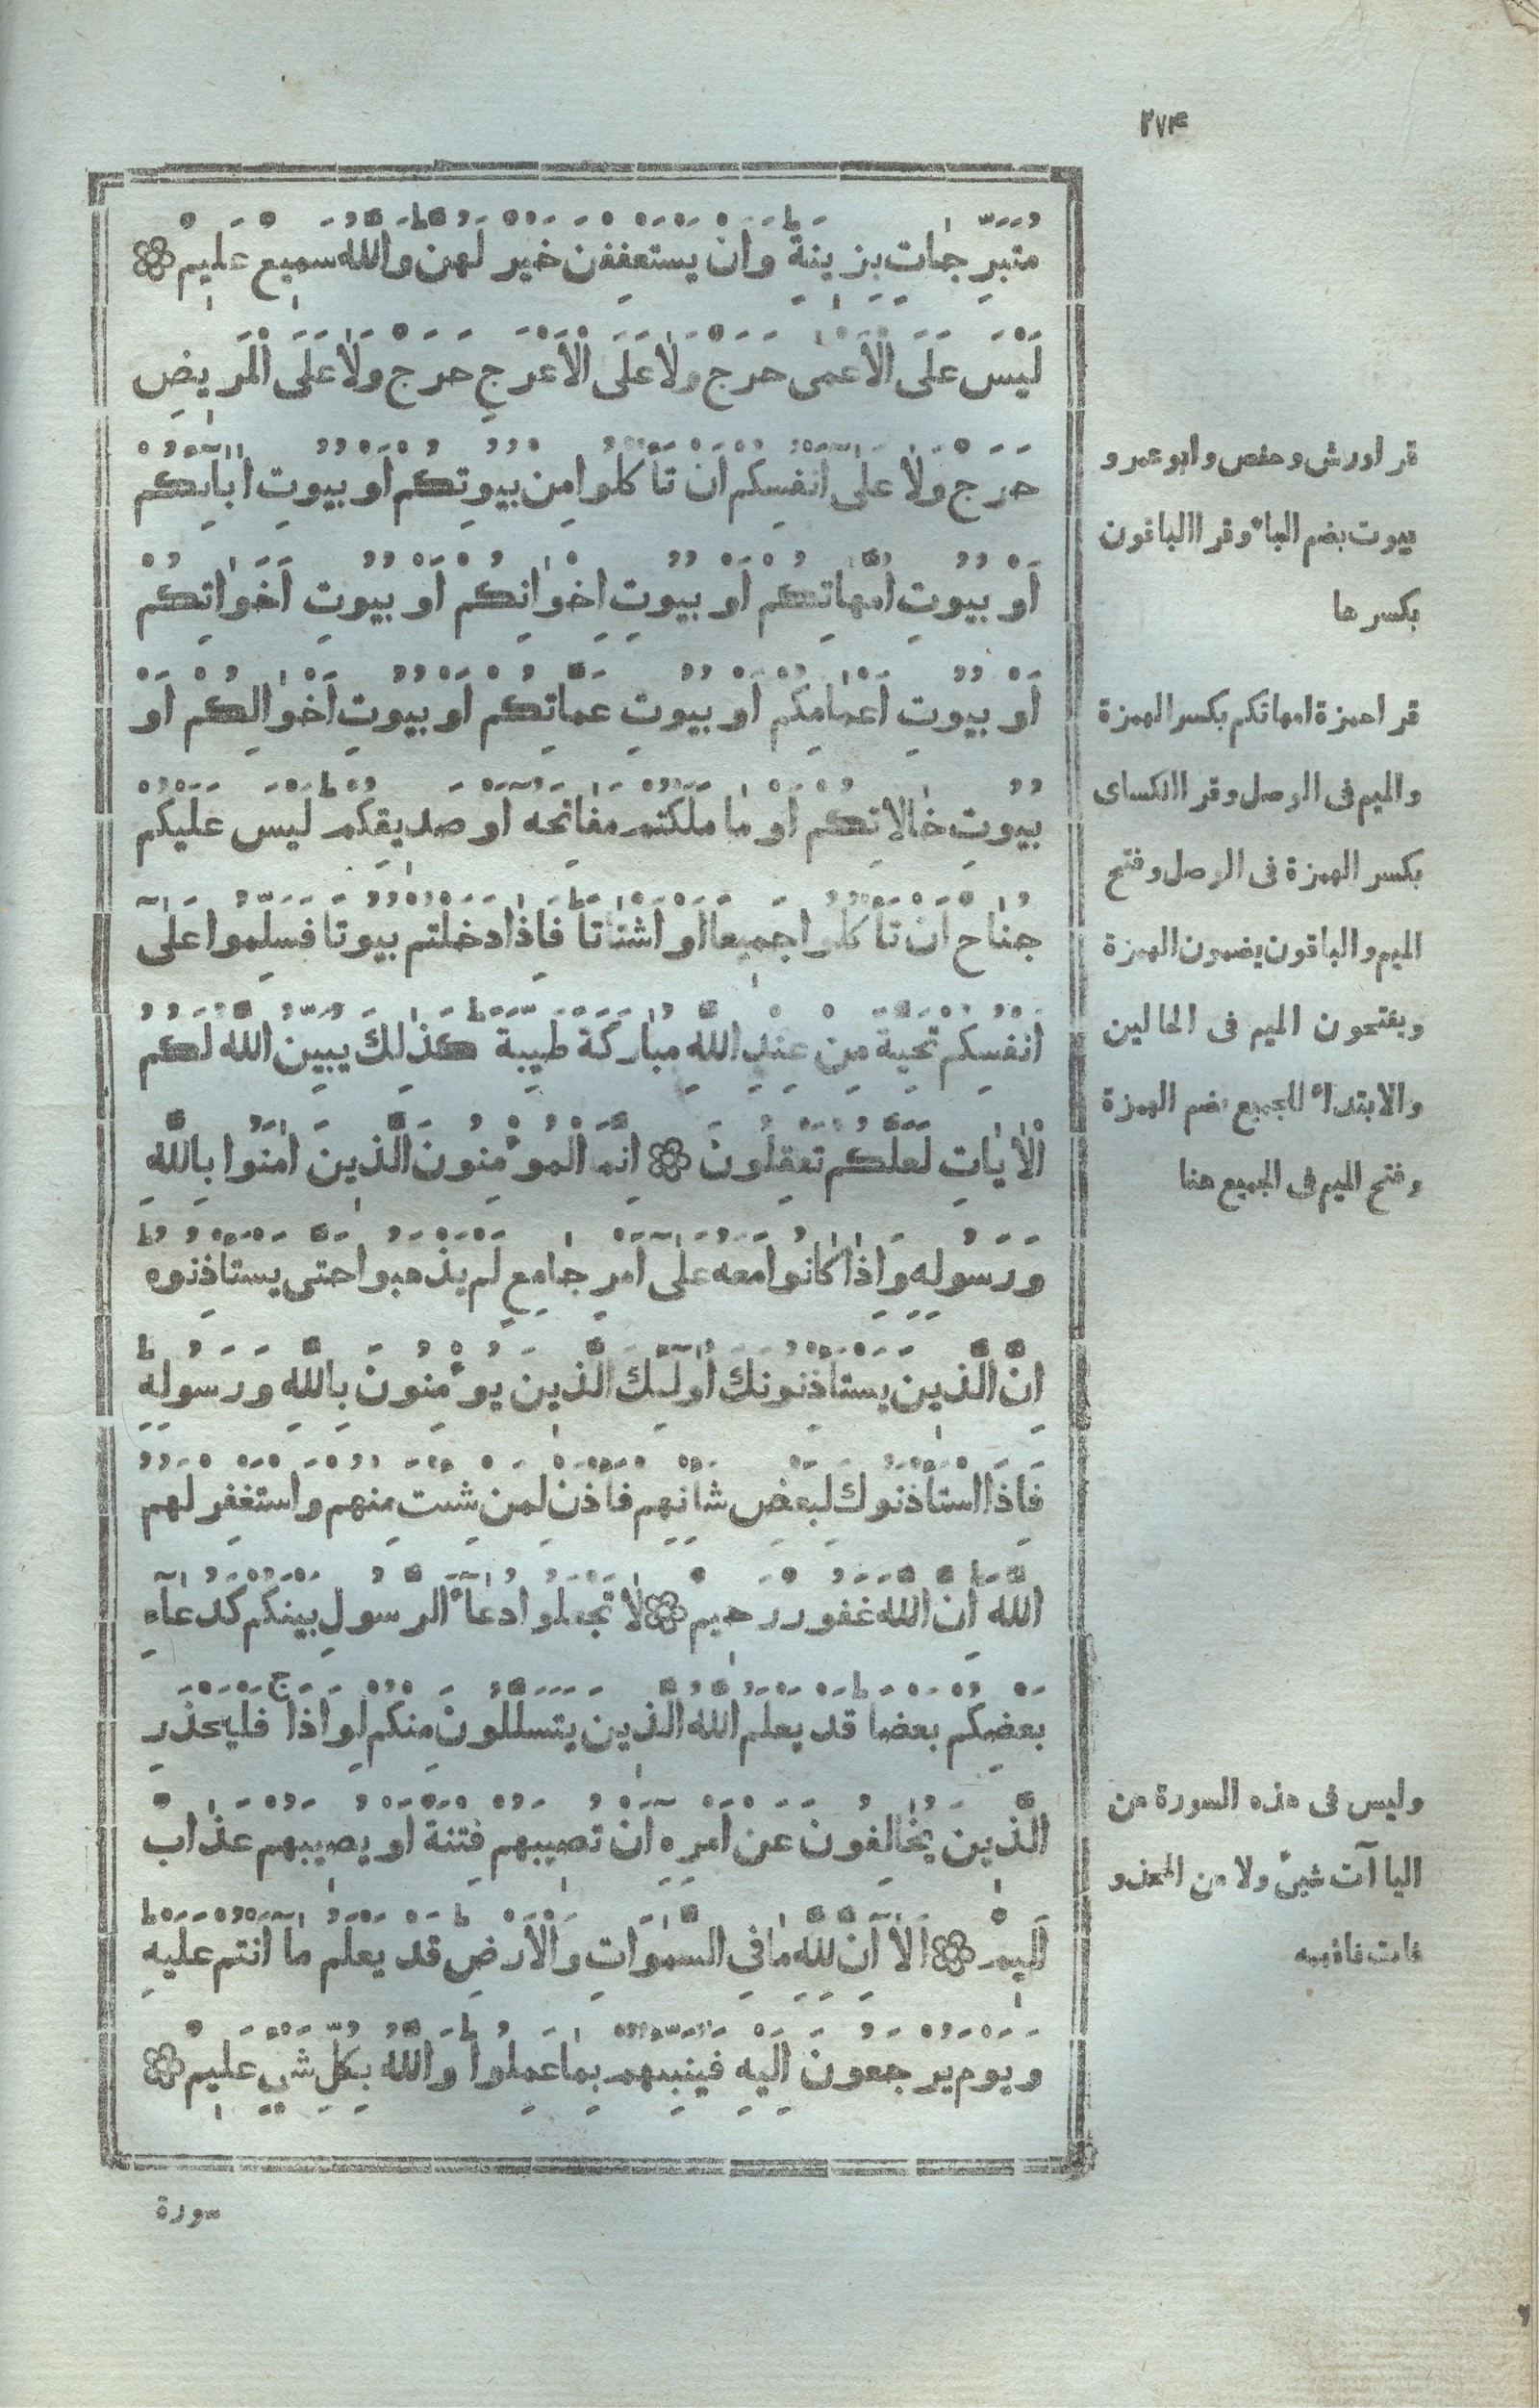 ٢٧٤
مُتَبَرِّجَاتٍ بِزِينَةٍ ط وَاَنْ يَسْتَعْفِفْنَ خَيْرٌ لَهُنَّ ط وَاللّٰهُ سَمِيعٌ عَلِيمٌ
لَيْسَ عَلَى الْاَعْمٰى حَرَجٌ وَلَا عَلَى الْاَعْرَجِ حَرَجٌ وَلَا عَلَى الْمَرِيضِ
حَرَجٌ وَلَا عَلٰٓى اَنْفُسِكُمْ اَنْ تَأْكُلُوا مِنْ بُيُوتِكُمْ اَوْ بُيُوتِ اٰبَآئِكُمْ
اَوْ بُيُوتِ اُمَّهَاتِكُمْ اَوْ بُيُوتِ اِخْوَانِكُمْ اَوْ بُيُوتِ اَخَوَاتِكُمْ
اَوْ بُيُوتِ اَعْمَامِكُمْ اَوْ بُيُوتِ عَمَّاتِكُمْ اَوْ بُيُوتِ اَخْوَالِكُمْ اَوْ
بُيُوتِ خَالَاتِكُمْ اَوْ مَا مَلَكْتُمْ مَفَاتِحَهُٓ اَوْ صَدِيقِكُمْ ط لَيْسَ عَلَيْكُمْ
جُنَاحٌ اَنْ تَأْكُلُوا جَمِيعًا اَوْ اَشْتَاتًا ط فَاِذَا دَخَلْتُمْ بُيُوتًا فَسَلِّمُوا عَلٰٓى
اَنْفُسِكُمْ تَحِيَّةً مِنْ عِنْدِ اللّٰهِ مُبَارَكَةً طَيِّبَةً ط كَذٰلِكَ يُبَيِّنُ اللّٰهُ لَكُمُ
الْاٰيَاتِ لَعَلَّكُمْ تَعْقِلُونَ اِنَّمَا الْمُؤْمِنُونَ الَّذِينَ اٰمَنُوا بِاللّٰهِ
وَرَسُولِهِ وَاِذَا كَانُوا مَعَهُ عَلٰٓى اَمْرٍ جَامِعٍ لَمْ يَذْهَبُوا حَتّٰى يَسْتَأْذِنُوهُ ط
اِنَّ الَّذِينَ يَسْتَأْذِنُونَكَ اُولٰٓئِكَ الَّذِينَ يُؤْمِنُونَ بِاللّٰهِ وَرَسُولِهِ ط
فَاِذَا اسْتَأْذَنُوكَ لِبَعْضِ شَأْنِهِمْ فَأْذَنْ لِمَنْ شِئْتَ مِنْهُمْ وَاسْتَغْفِرْ لَهُمُ
اللّٰهَ ط اِنَّ اللّٰهَ غَفُورٌ رَحِيمٌ لَا تَجْعَلُوا دُعَآءَ الرَّسُولِ بَيْنَكُمْ كَدُعَآءِ
بَعْضِكُمْ بَعْضًا ط قَدْ يَعْلَمُ اللّٰهُ الَّذِينَ يَتَسَلَّلُونَ مِنْكُمْ لِوَاذًا ج فَلْيَحْذَرِ
الَّذِينَ يُخَالِفُونَ عَنْ اَمْرِهِٓ اَنْ تُصِيبَهُمْ فِتْنَةٌ اَوْ يُصِيبَهُمْ عَذَابٌ
اَلِيمٌ اَلَآ اِنَّ لِلّٰهِ مَا فِى السَّمٰوَاتِ وَالْاَرْضِ ط قَدْ يَعْلَمُ مَآ اَنْتُمْ عَلَيْهِ ط
وَيَوْمَ يُرْجَعُونَ اِلَيْهِ فَيُنَبِّئُهُمْ بِمَا عَمِلُوا ط وَاللّٰهُ بِكُلِّ شَيْءٍ عَلِيمٌ
سورة
قرا ورش وحفص وابو عمرو
بيوت بضم الباء وقرا الباقون
بكسرها
قرا حمزة امهاتكم بكسر الهمزة
والميم فى الوصل وقرا الكساى
بكسر الهمزة فى الوصل وفتح
الميم والباقون يضمون الهمزة
ويفتحون الميم فى الحالين
والابتداء للجميع بضم الهمزة
وفتح الميم فى الجميع هنا
وليس فى هذه السورة من
الياآت شىء ولا من المحذو
فات فافهمه